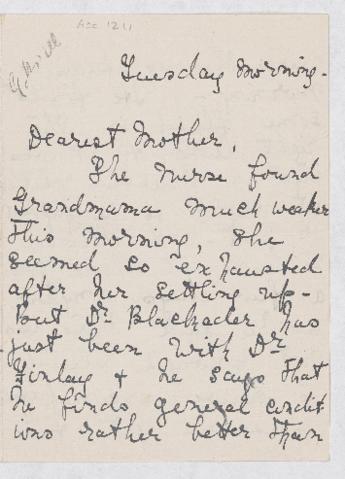 Acc 1211
Tuesday Morning.
Dearest Mother,
The Nurse found
Grandmama much weaker
this morning, she
seemed so exhausted
after her settling up-
but Dr Blackader has
just been with Dr
Finlay & he says that
he finds general condit
ions rather better than